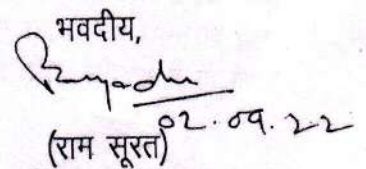 भवदीय,
02.09.22
(राम सूरत)